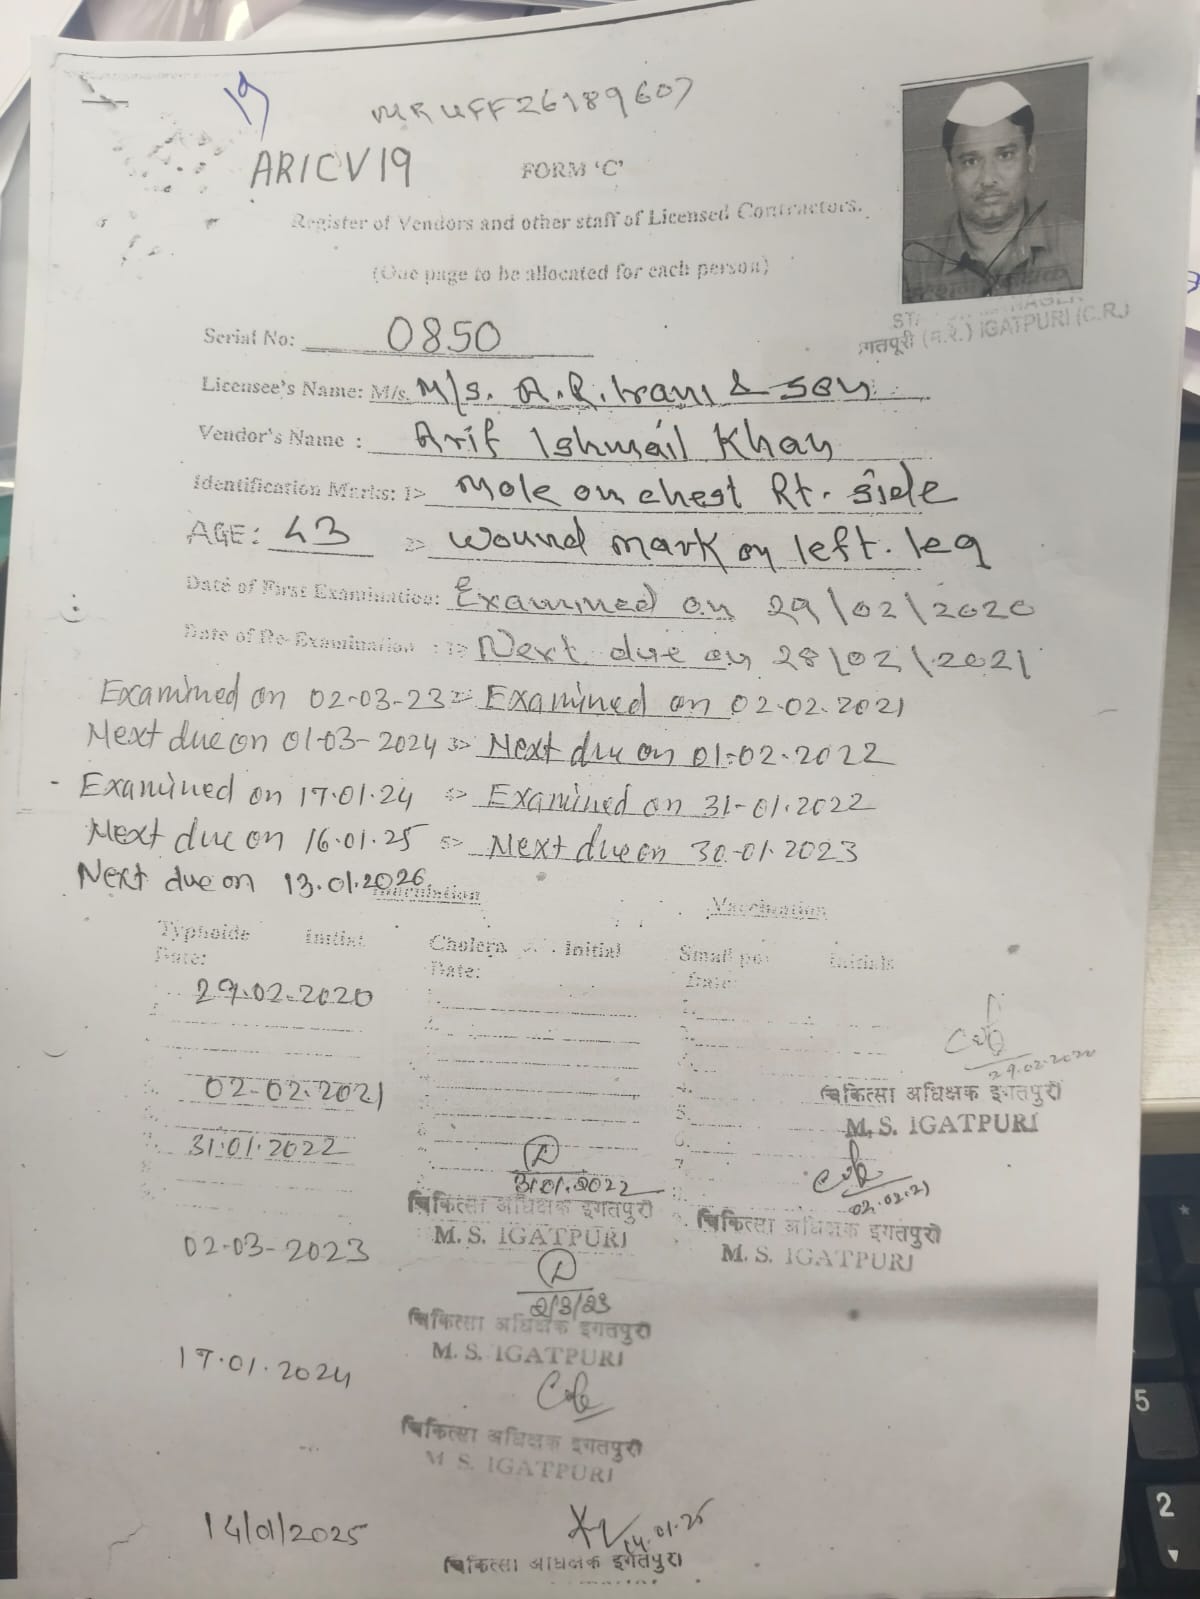 19
MRUFF26189607
ARICV19
FORM 'C'
Register of Vendors and other staff of Licensed Contractors.
(One page to be allocated for each person)
इगतपूरी (म.रे.) IGATPURI (C.R.)
Serial No: 0850
Licensee's Name: M/s. M/s. A.R. Irani & Son.
Vendor's Name : Arif Ishmail Khan
Identification Marks: 1> Mole on chest Rt. side
AGE: 43 2> Wound mark on left. leg
Date of First Examination: Examined on 29/02/2020
Date of Re-Examination : 1> Next due on 28/02/2021
Examined on 02-03-23 2> Examined on 02.02.2021
Next due on 01-03-2024 3> Next due on 01-02-2022
Examined on 17.01.24 4> Examined on 31-01.2022
Next due on 16.01.25 5> Next due on 30-01.2023
Next due on 13.01.2026
Inoculation Vaccination
Typhoide Initial Cholera Initial Small pox Initials
Date: Date: Date:
29.02.2020
29.02.2020
चिकित्सा अधिक्षक इगतपुरी
M. S. IGATPURI
02-02-2021
31.01.2022
31.01.2022
02.02.21
चिकित्सा अधिक्षक इगतपुरी
M. S. IGATPURI
चिकित्सा अधिक्षक इगतपुरी
M. S. IGATPURI
02-03-2023
2/3/23
चिकित्सा अधिक्षक इगतपुरी
M. S. IGATPURI
17.01.2024
चिकित्सा अधिक्षक इगतपुरी
M S. IGATPURI
14/01/2025
14.01.25
चिकित्सा अधिक्षक इगतपुरी
5
2